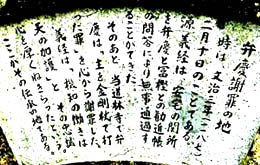 弁慶謝罪の地
時は文治三年(一一八七)
二月十日のことである。
源義経は、安宅の関所
を弁慶と富樫との勧進帳
の問答により無事通過す
ることができた。
そのあと、当道林寺で弁
慶は、主を金剛杖で打
った罪を心から謝罪した。
義経は、機知の働きは
天の加護と、その忠誠
心を厚くねぎらったという。
ここがその伝承の地である。